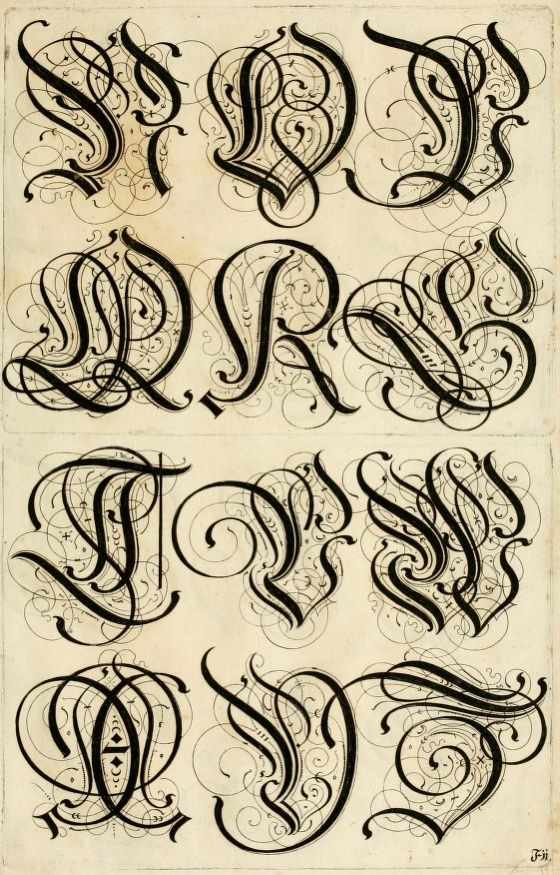 N O P
Q R S
T V W
X Y Z
F ii.